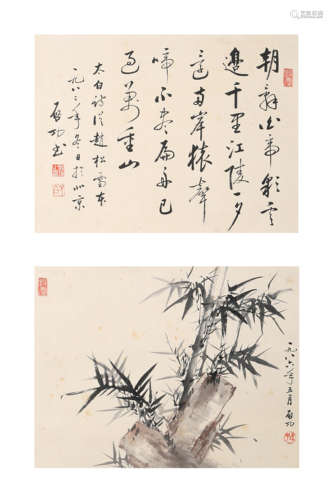 朝辭白帝彩雲
邊千里江陵一夕
還兩岸猿聲
啼不盡扁舟已
過萬重山
太白詩從趙松雪本
一九八三年冬日於北京
啟功書
一九八六年五月啟功